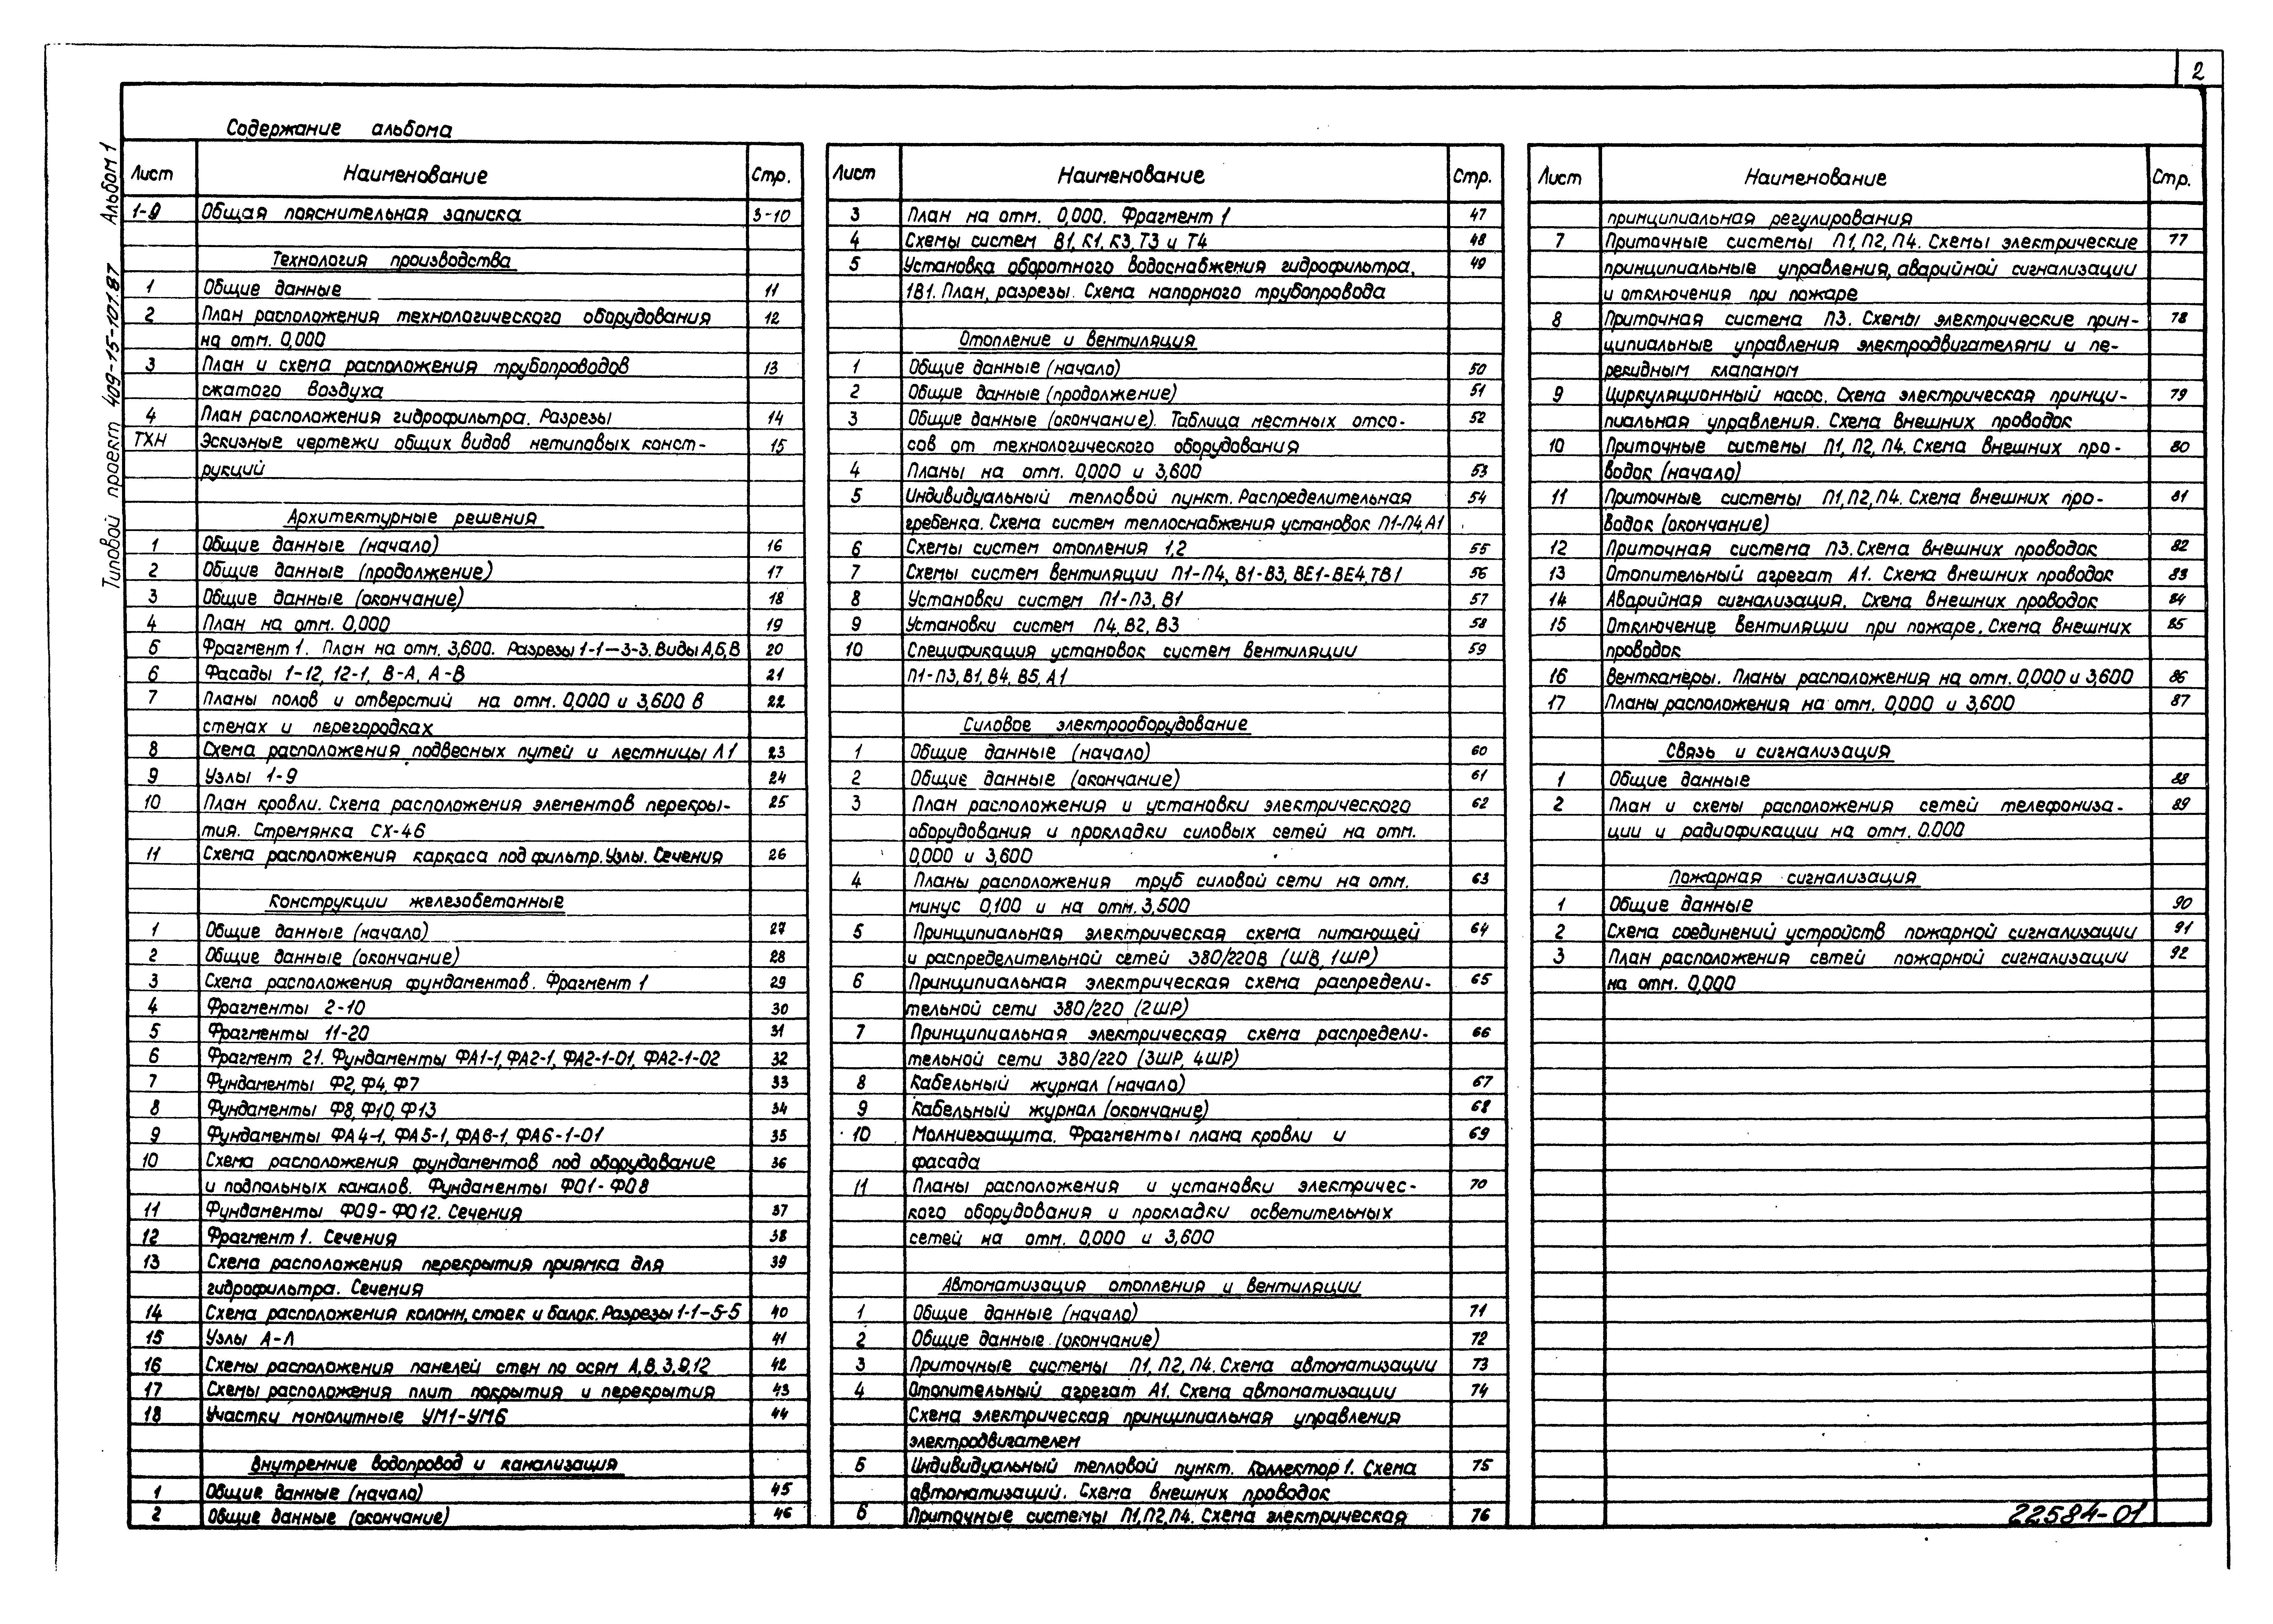 2
Типовой проект 409-15-107.87 Альбом 1
Содержание альбома
Лист Наименование Стр.
1-9 Общая пояснительная записка 3-10
Технология производства
1 Общие данные 11
2 План расположения технологического оборудования 12
на отм. 0,000
3 План и схема расположения трубопроводов 13
сжатого воздуха
4 План расположения гидрофильтра. Разрезы 14
ТХН Эскизные чертежи общих видов нетиповых конст- 15
рукций
Архитектурные решения
1 Общие данные (начало) 16
2 Общие данные (продолжение) 17
3 Общие данные (окончание) 18
4 План на отм. 0,000 19
5 Фрагмент 1. План на отм. 3,600. Разрезы 1-1—3-3. Виды А,Б,В 20
6 Фасады 1-12, 12-1, В-А, А-В 21
7 Планы полов и отверстий на отм. 0,000 и 3,600 в 22
стенах и перегородках
8 Схема расположения подвесных путей и лестницы Л1 23
9 Узлы 1-9 24
10 План кровли. Схема расположения элементов перекры- 25
тия. Стремянка СХ-46
11 Схема расположения каркаса под фильтр. Узлы. Сечения 26
Конструкции железобетонные
1 Общие данные (начало) 27
2 Общие данные (окончание) 28
3 Схема расположения фундаментов. Фрагмент 1 29
4 Фрагменты 2-10 30
5 Фрагменты 11-20 31
6 Фрагмент 21. Фундаменты ФА1-1, ФА2-1, ФА2-1-01, ФА2-1-02 32
7 Фундаменты Ф2, Ф4, Ф7 33
8 Фундаменты Ф8, Ф10, Ф13 34
9 Фундаменты ФА4-1, ФА5-1, ФА6-1, ФА6-1-01 35
10 Схема расположения фундаментов под оборудование 36
и подпольных каналов. Фундаменты Ф01-Ф08
11 Фундаменты Ф09-Ф012. Сечения 37
12 Фрагмент 1. Сечения 38
13 Схема расположения перекрытия приямка для 39
гидрофильтра. Сечения
14 Схема расположения колонн, стоек и балок. Разрезы 1-1—5-5 40
15 Узлы А-Л 41
16 Схемы расположения панелей стен по осям А,В,3,9,12 42
17 Схемы расположения плит покрытия и перекрытия 43
18 Участки монолитные УМ1-УМ6 44
Внутренние водопровод и канализация
1 Общие данные (начало) 45
2 Общие данные (окончание) 46
Лист Наименование Стр.
3 План на отм. 0,000. Фрагмент 1 47
4 Схемы систем В1, К1, К3, Т3 и Т4 48
5 Установка оборотного водоснабжения гидрофильтра, 49
1В1. План, разрезы. Схема напорного трубопровода
Отопление и вентиляция
1 Общие данные (начало) 50
2 Общие данные (продолжение) 51
3 Общие данные (окончание). Таблица местных отсо- 52
сов от технологического оборудования
4 Планы на отм. 0,000 и 3,600 53
5 Индивидуальный тепловой пункт. Распределительная 54
гребенка. Схема систем теплоснабжения установок П1-П4, А1
6 Схемы систем отопления 1,2 55
7 Схемы систем вентиляции П1-П4, В1-В3, ВЕ1-ВЕ4, ТВ1 56
8 Установки систем П1-П3, В1 57
9 Установки систем П4, В2, В3 58
10 Спецификация установок систем вентиляции 59
П1-П3, В1, В4, В5, А1
Силовое электрооборудование
1 Общие данные (начало) 60
2 Общие данные (окончание) 61
3 План расположения и установки электрического 62
оборудования и прокладки силовых сетей на отм.
0,000 и 3,600
4 Планы расположения труб силовой сети на отм. 63
минус 0,100 и на отм. 3,500
5 Принципиальная электрическая схема питающей 64
и распределительной сетей 380/220В (ШВ, 1ШР)
6 Принципиальная электрическая схема распредели- 65
тельной сети 380/220 (2ШР)
7 Принципиальная электрическая схема распредели- 66
тельной сети 380/220 (3ШР, 4ШР)
8 Кабельный журнал (начало) 67
9 Кабельный журнал (окончание) 68
10 Молниезащита. Фрагменты плана кровли и 69
фасада
11 Планы расположения и установки электричес- 70
кого оборудования и прокладки осветительных
сетей на отм. 0,000 и 3,600
Автоматизация отопления и вентиляции
1 Общие данные (начало) 71
2 Общие данные (окончание) 72
3 Приточные системы П1, П2, П4. Схема автоматизации 73
4 Отопительный агрегат А1. Схема автоматизации 74
Схема электрическая принципиальная управления
электродвигателем
5 Индивидуальный тепловой пункт. Коллектор 1. Схема 75
автоматизаций. Схема внешних проводок
6 Приточные системы П1, П2, П4. Схема электрическая 76
Лист Наименование Стр.
принципиальная регулирования
7 Приточные системы П1, П2, П4. Схемы электрические 77
принципиальные управления, аварийной сигнализации
и отключения при пожаре
8 Приточная система П3. Схемы электрические прин- 78
ципиальные управления электродвигателями и пе-
рекидным клапаном
9 Циркуляционный насос. Схема электрическая принци- 79
пиальная управления. Схема внешних проводок
10 Приточные системы П1, П2, П4. Схема внешних про- 80
водок (начало)
11 Приточные системы П1, П2, П4. Схема внешних про- 81
водок (окончание)
12 Приточная система П3. Схема внешних проводок 82
13 Отопительный агрегат А1. Схема внешних проводок 83
14 Аварийная сигнализация. Схема внешних проводок 84
15 Отключение вентиляции при пожаре. Схема внешних 85
проводок
16 Венткамеры. Планы расположения на отм. 0,000 и 3,600 86
17 Планы расположения на отм. 0,000 и 3,600 87
Связь и сигнализация
1 Общие данные 88
2 План и схемы расположения сетей телефониза- 89
ции и радиофикации на отм. 0.000
Пожарная сигнализация
1 Общие данные 90
2 Схема соединений устройств пожарной сигнализации 91
3 План расположения сетей пожарной сигнализации 92
на отм. 0,000
22584-01